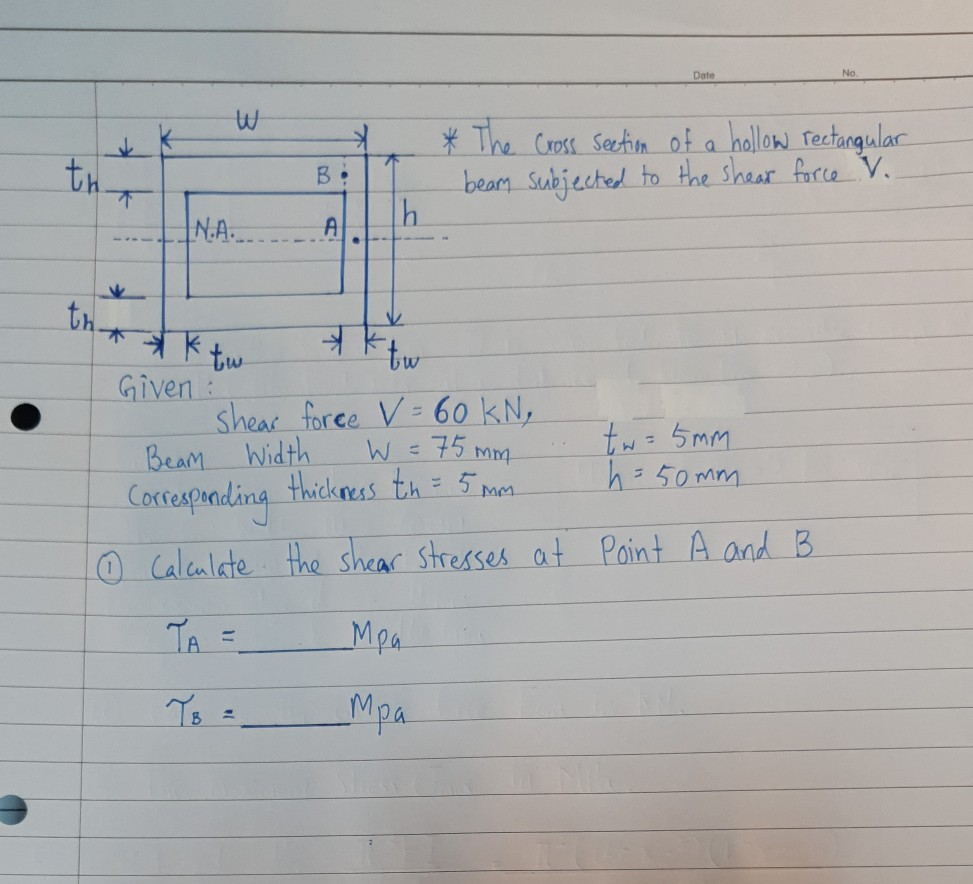 Date No.
W
* The Cross Section of a hollow rectangular
beam subjected to the shear force V.
th
B
h
N.A. A
th
tw tw
Given:
Shear force V = 60 kN,
Beam Width W = 75 mm tw = 5mm
Corresponding thickness th = 5 mm h = 50mm
① Calculate the shear stresses at Point A and B
τA = ______ Mpa
τB = ______ Mpa